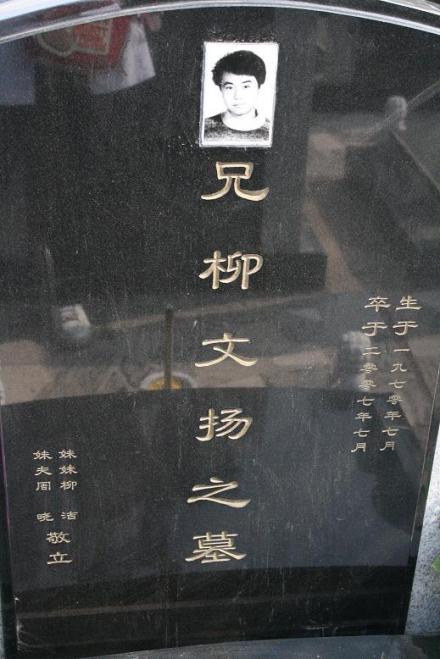 生于一九七零年七月
卒于二零零七年七月
兄柳文扬之墓
妹妹柳洁
妹夫周晓
敬立